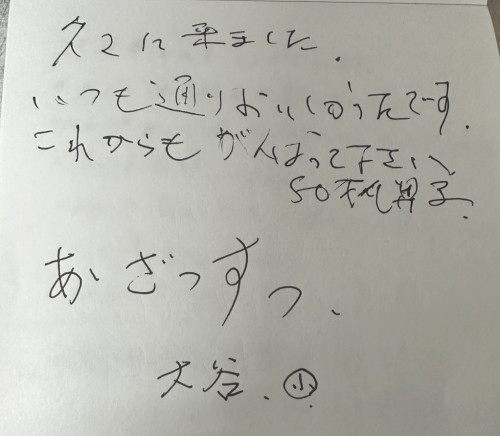 久々に来ました.
いつも通りおいしかったです.
これからもがんばって下さい
50代男子.
あざっすっ、
大谷. 小